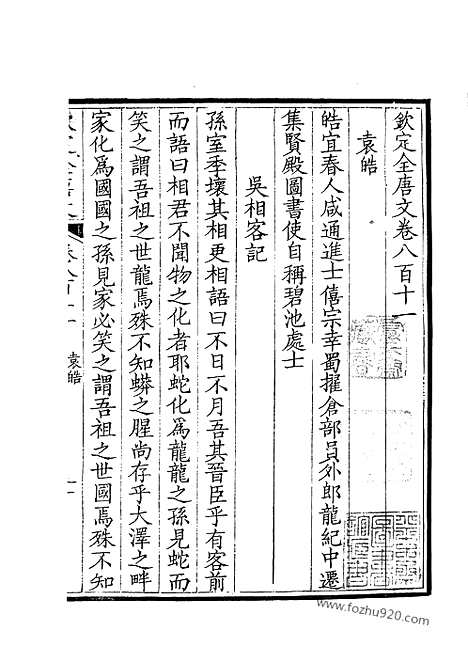 欽定全唐文卷八百十一
袁皓
皓宜春人咸通進士僖宗幸蜀擢倉部員外郎龍紀中遷
集賢殿圖書使自稱碧池處士
吳相客記
孫室季壞其相更相語曰不日不月吾其晉臣乎有客前
而語曰相君不聞物之化者耶蛇化為龍龍之孫見蛇而
笑之謂吾祖之世龍焉殊不知蟒之腥尚存乎大澤之畔
家化為國國之孫見家必笑之謂吾祖之世國焉殊不知
袁皓
一
www.fozhu920.com